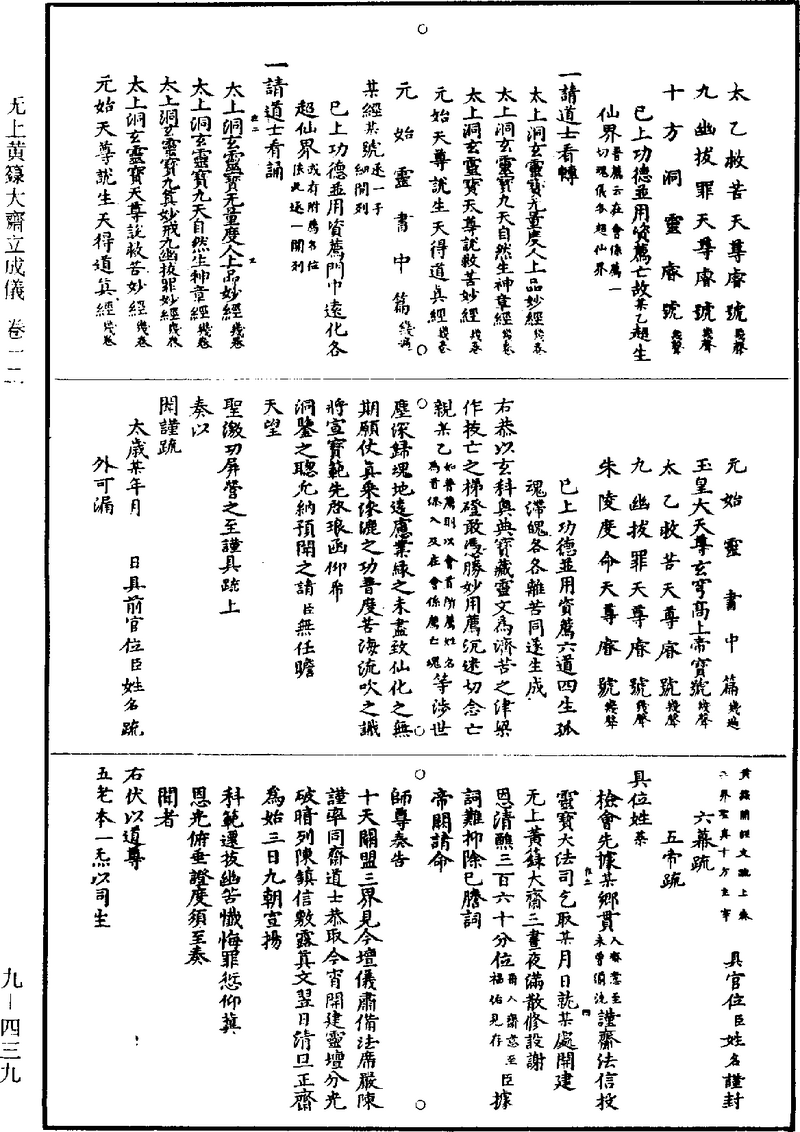 太乙救苦天尊睿號幾聲
九幽拔罪天尊睿號幾聲
十方洞靈睿號幾聲
已上功德並用資薦亡故某乙超生
仙界普薦云在會係薦一切魂儀各超仙界
一請道士看轉
太上洞玄靈寶无量度人上品妙經幾卷
太上洞玄靈寶九天自然生神章經幾卷
太上洞玄靈寶天尊說救苦妙經幾卷
元始天尊說生天得道真經幾卷
元始靈書中篇幾過
某經某號逐一子細開列
已上功德並用資薦門中遠化各
超仙界或有附薦名位依此逐一開列
一請道士看誦
太上洞玄靈寶无量度人上品妙經幾卷
太上洞玄靈寶九天自然生神章經幾卷
太上洞玄靈寶九真妙戒九幽拔罪妙經幾卷
太上洞玄靈寶天尊說救苦妙經幾卷
元始天尊說生天得道真經幾卷
元始靈書中篇幾過
玉皇大天尊玄穹高上帝寶號幾聲
太乙救苦天尊睿號幾聲
九幽拔罪天尊睿號幾聲
朱陵度命天尊睿號幾聲
已上功德並用資薦六道四生孤
魂滯魄各各離苦同遂生成
右恭以玄科奧典寶藏靈文為濟苦之津梁
作拔亡之梯磴敢憑勝妙用薦沉迷切念亡
親某乙如普薦則以會首所薦姓名為首係入及在會係薦亡魂等涉世
塵深歸魂地遠慮業緣之未盡致仙化之無
期願仗真乘洊漉之功普度苦海流吹之識
將宣寶範先啓琅函仰希
洞鑒之聰允納預開之請臣無任瞻
天望
聖激切屏營之至謹具疏上
奏以
聞謹疏
太歲某年月 日具前官位臣姓名疏
外可漏
黃籙開經文疏上奏
三界聖真十方主宰 具官位臣姓名謹封
六幕疏
五帝疏
具位姓某
檢會先據某鄉貫入齋意至未曾須洗謹齋法信投
靈寶大法司乞取某月日就某處開建
无上黃籙大齋三晝夜滿散修設謝
恩清醮三百六十分位再入齋意至福佑見存臣據
詞難抑除已謄詞
帝闕請命
師尊奏告
十天關盟三界見今壇儀肅備法席嚴陳
謹率同齋道士恭取今宵開建靈壇分光
破暗列陳鎮信敷露真文翌日清旦正齋
為始三日九朝宣揚
科範遷拔幽苦懺悔罪愆仰冀
恩光俯垂證度須至奏
聞者
右伏以道尊
五老本一炁以司生
无上黃籙大齋立成儀 卷一一
九—四三九